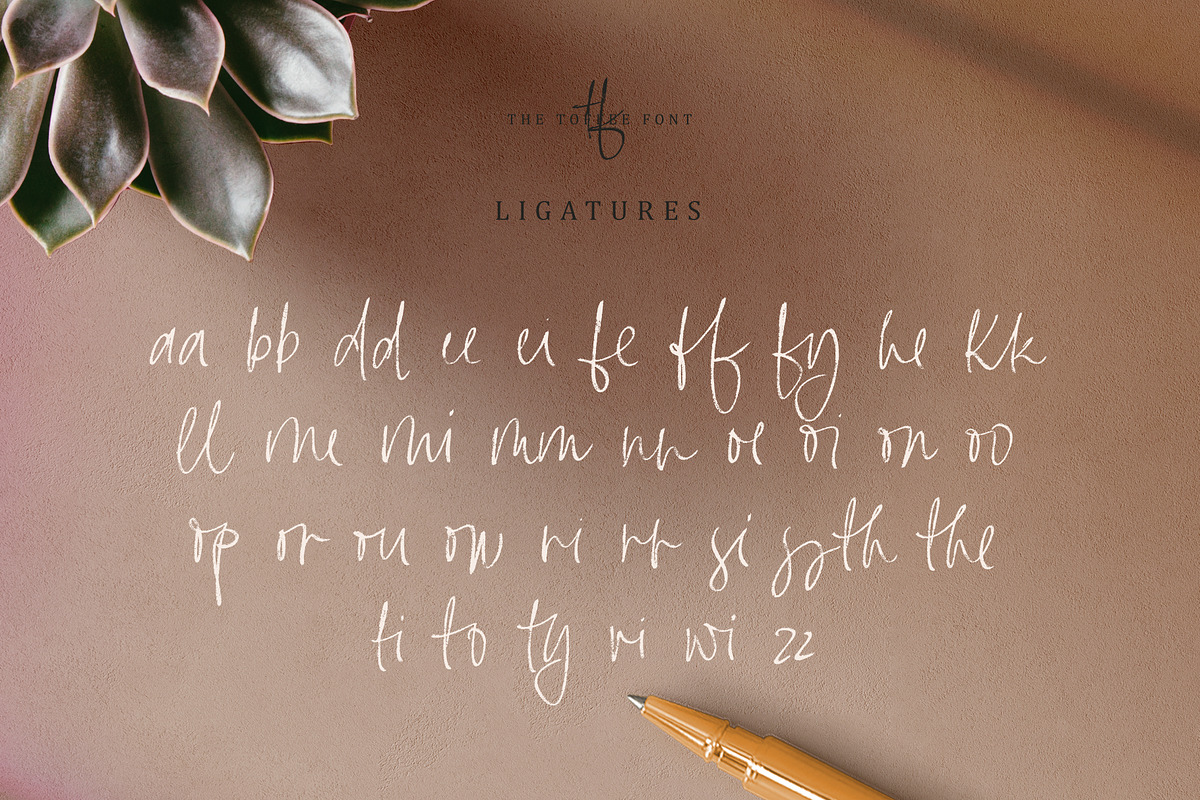 THE TOFFEE FONT
LIGATURES
aa bb dd ee ei fe ff fy he kk
ll me mi mm nn oe oi on oo
op or ou ow ri rr si ss th the
ti to ty vi wi zz